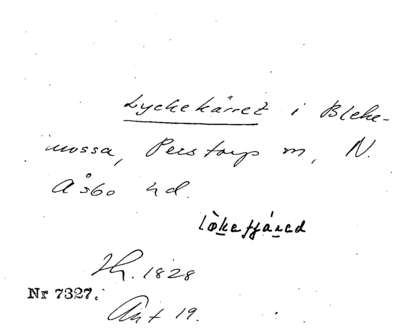 Lyckekärret i Bleke-
mossa, Perstorp m, N.
Åsbo hd.
lòkefjáred
Th. 1828
Nr 7327.
Ant 19.